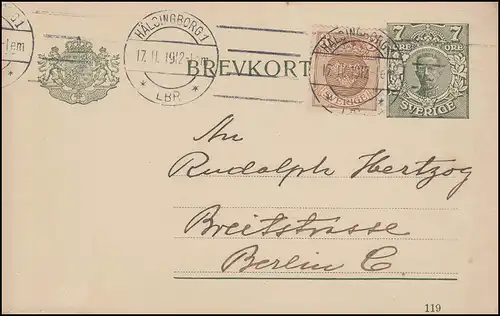 HÄLSINGBORG 1
17.11.1912-1 em
LBR
BREVKORT
7 7
ÖRE ÖRE
SVERIGE
An
Rudolph Hertzog
Breitstrasse
Berlin C
119